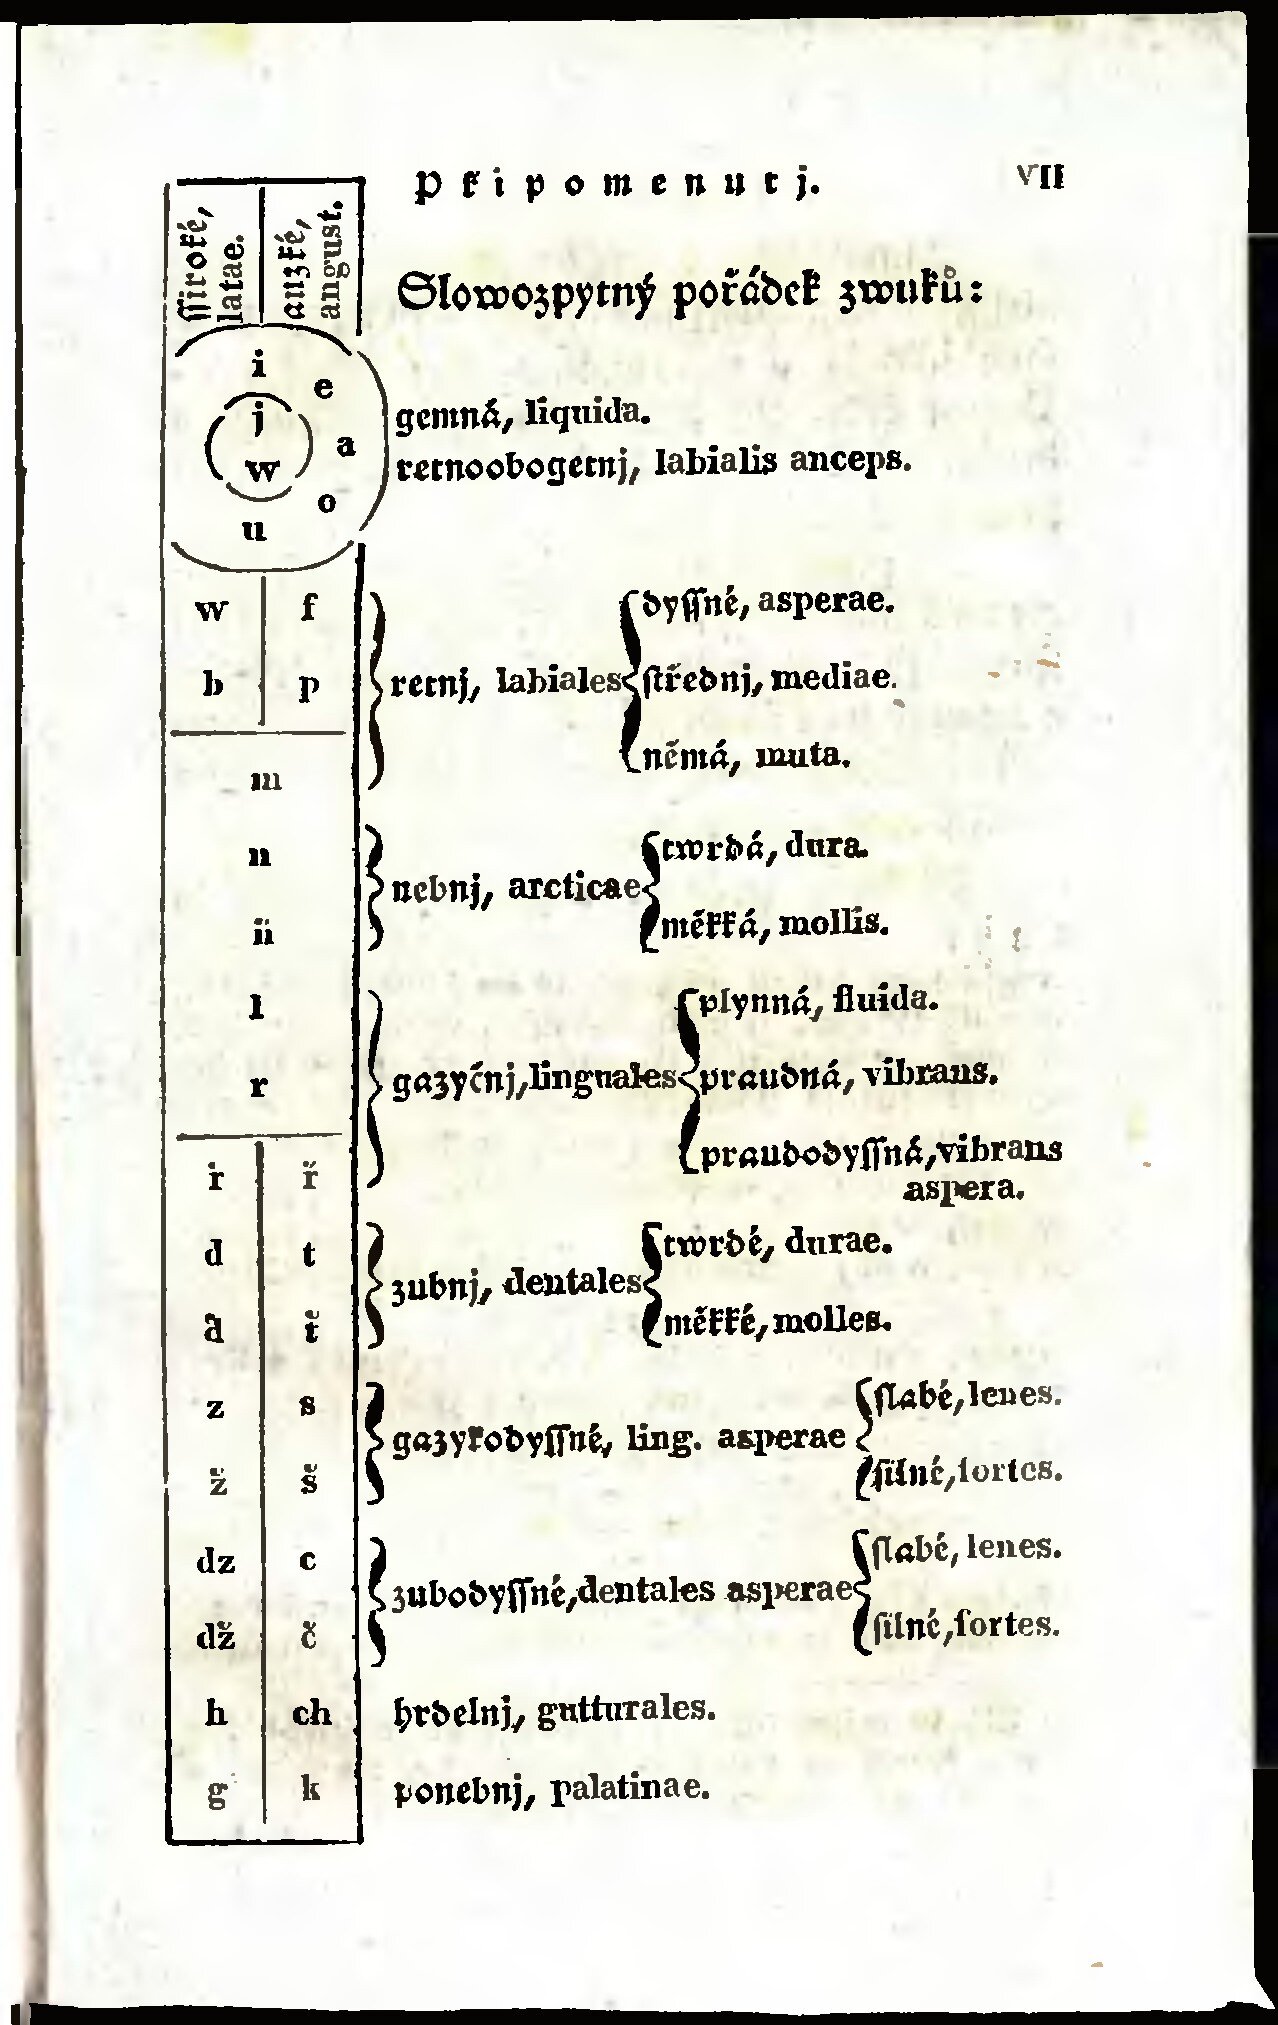 Připomenutj.
VII
ſſiroké,
latae.
auzké,
angust.
Slowozpytný pořádek zwuků:
i
e
j
a
w
o
u
gemná, liquida.
retnoobogetnj, labialis anceps.
w f
b p
m
retnj, labiales
dyſſné, asperae.
střednj, mediae.
němá, muta.
n
ň
nebnj, arcticae
twrdá, dura.
měkká, mollis.
l
r
ṙ ř
gazyčnj, linguales
plynná, fluida.
praudná, vibrans.
praudodyſſná, vibrans
aspera.
d t
ď ť
zubnj, dentales
twrdé, durae.
měkké, molles.
z s
ž š
gazykodyſſné, ling. asperae
ſlabé, lenes.
ſilné, fortes.
dz c
dž č
zubodyſſné, dentales asperae
ſlabé, lenes.
ſilné, fortes.
h ch
hrdelnj, gutturales.
g k
ponebnj, palatinae.